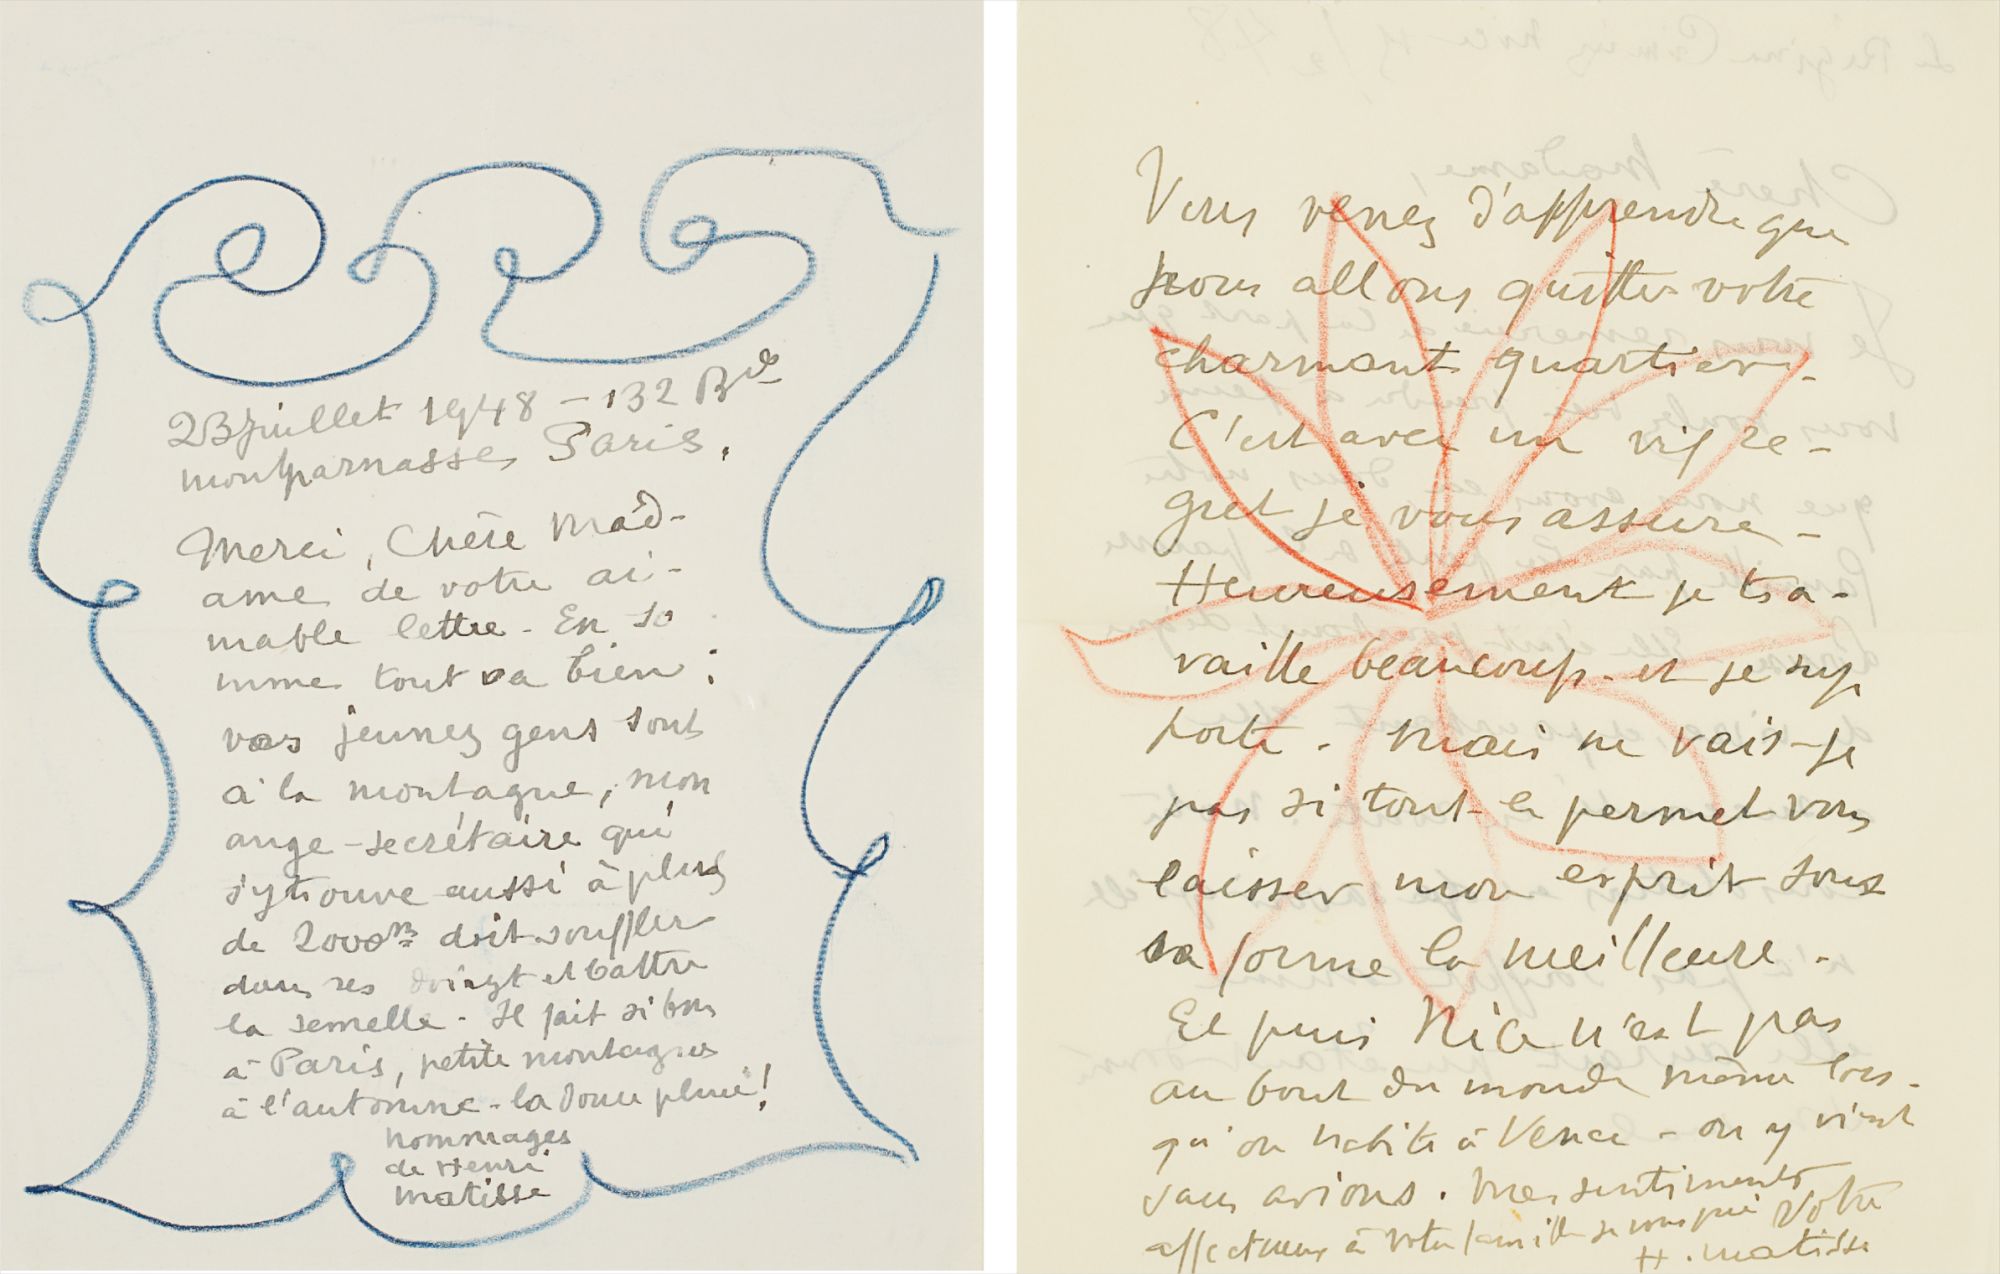 23 juillet 1948 - 132 Bd
montparnasse, Paris.
Merci, Chère Mad-
ame de votre ai-
mable lettre - En so
mme tout va bien :
vos jeunes gens sont
à la montagne, mon
ange-secrétaire qui
s'y trouve aussi à plus
de 2000m doit souffler
dans ses doigt et battre
la semelle - Il fait si bon
à Paris, petite montagnes
à l'automne - la douce pluie!
hommages
de Henri
matisse
Vous venez d'apprendre que
nous allons quitter votre
charmant quartier.
C'est avec un vif re-
gret je vous assure -
Heureusement je tra-
vaille beaucoup - et je sup
porte. Mais ne vais-je
pas si tout le permet vous
laisser mon esprit sous
sa forme la meilleure.
Et puis Nice n'est pas
au bout du monde même lors-
qu'on habite à Vence - on y vient
sans avions. Mes sentiments
affectueux à votre famille je vous prie Votre
H. matisse
Le Régina Cimiez Nice
Chère Madame,